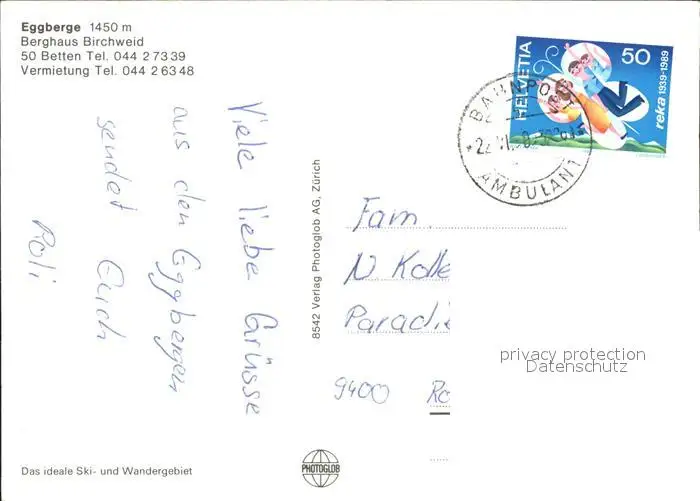 Eggberge 1450 m
Berghaus Birchweid
50 Betten Tel. 044 2 73 39
Vermietung Tel. 044 2 63 48
Viele liebe Grüsse
aus den Eggbergen
sendet Euch
Roli
Das ideale Ski- und Wandergebiet
8542 Verlag Photoglob AG, Zürich
PHOTOGLOB
HELVETIA
50
reka 1939-1989
BAHNPOST
AMBULANT
Fam.
N Kolle
Paradie
9400 Ro
privacy protection
Datenschutz